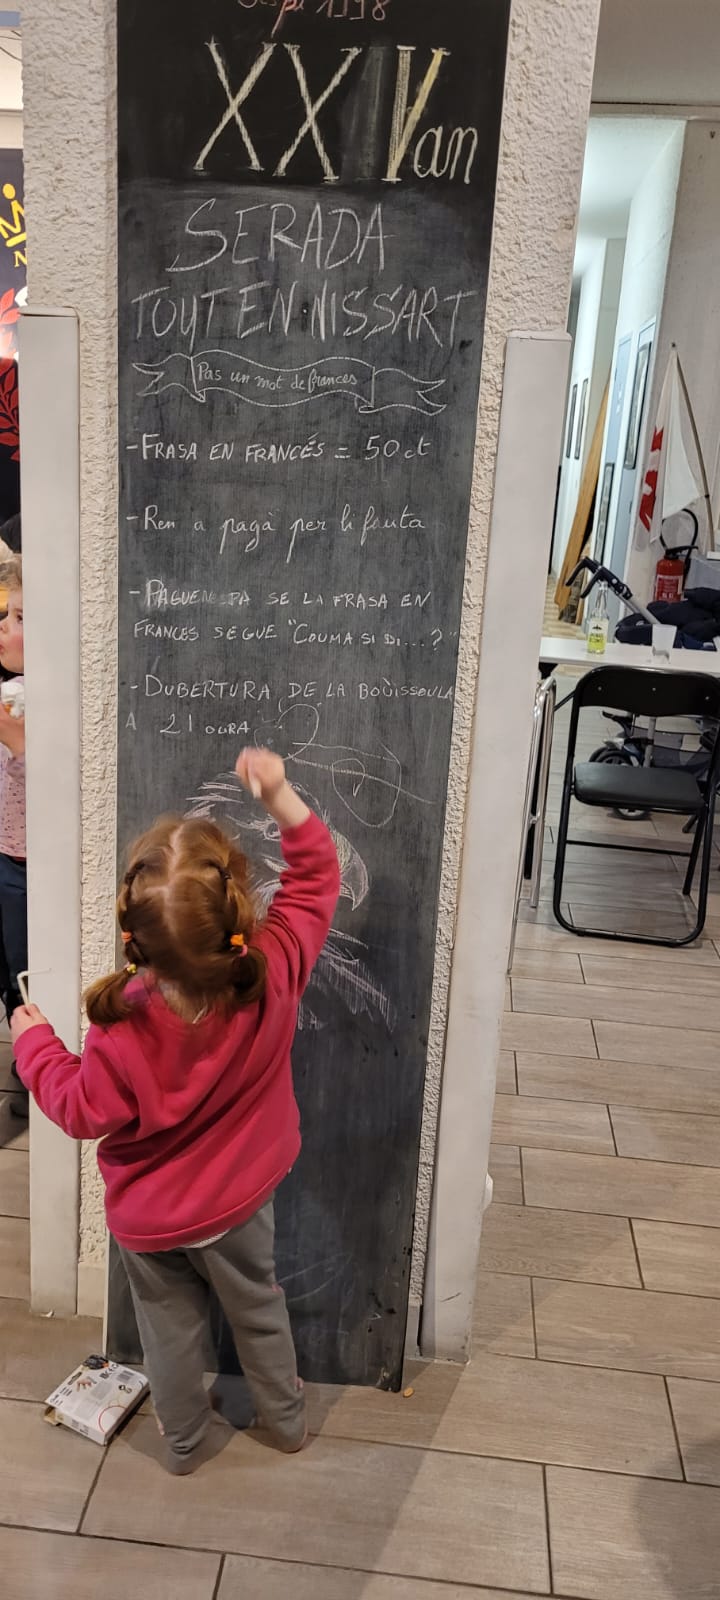 Despi 1998
XX Van
SERADA
TOUT EN NISSART
Pas un mot de frances
- FRASA EN FRANCÉS = 50 ct
- Ren a pagà per li fauta
- PAGUEN PA SE LA FRASA EN
FRANCES SEGUE "COUMA SI DI...?"
- DUBERTURA DE LA BOÙISSOULA
A 21 OURA